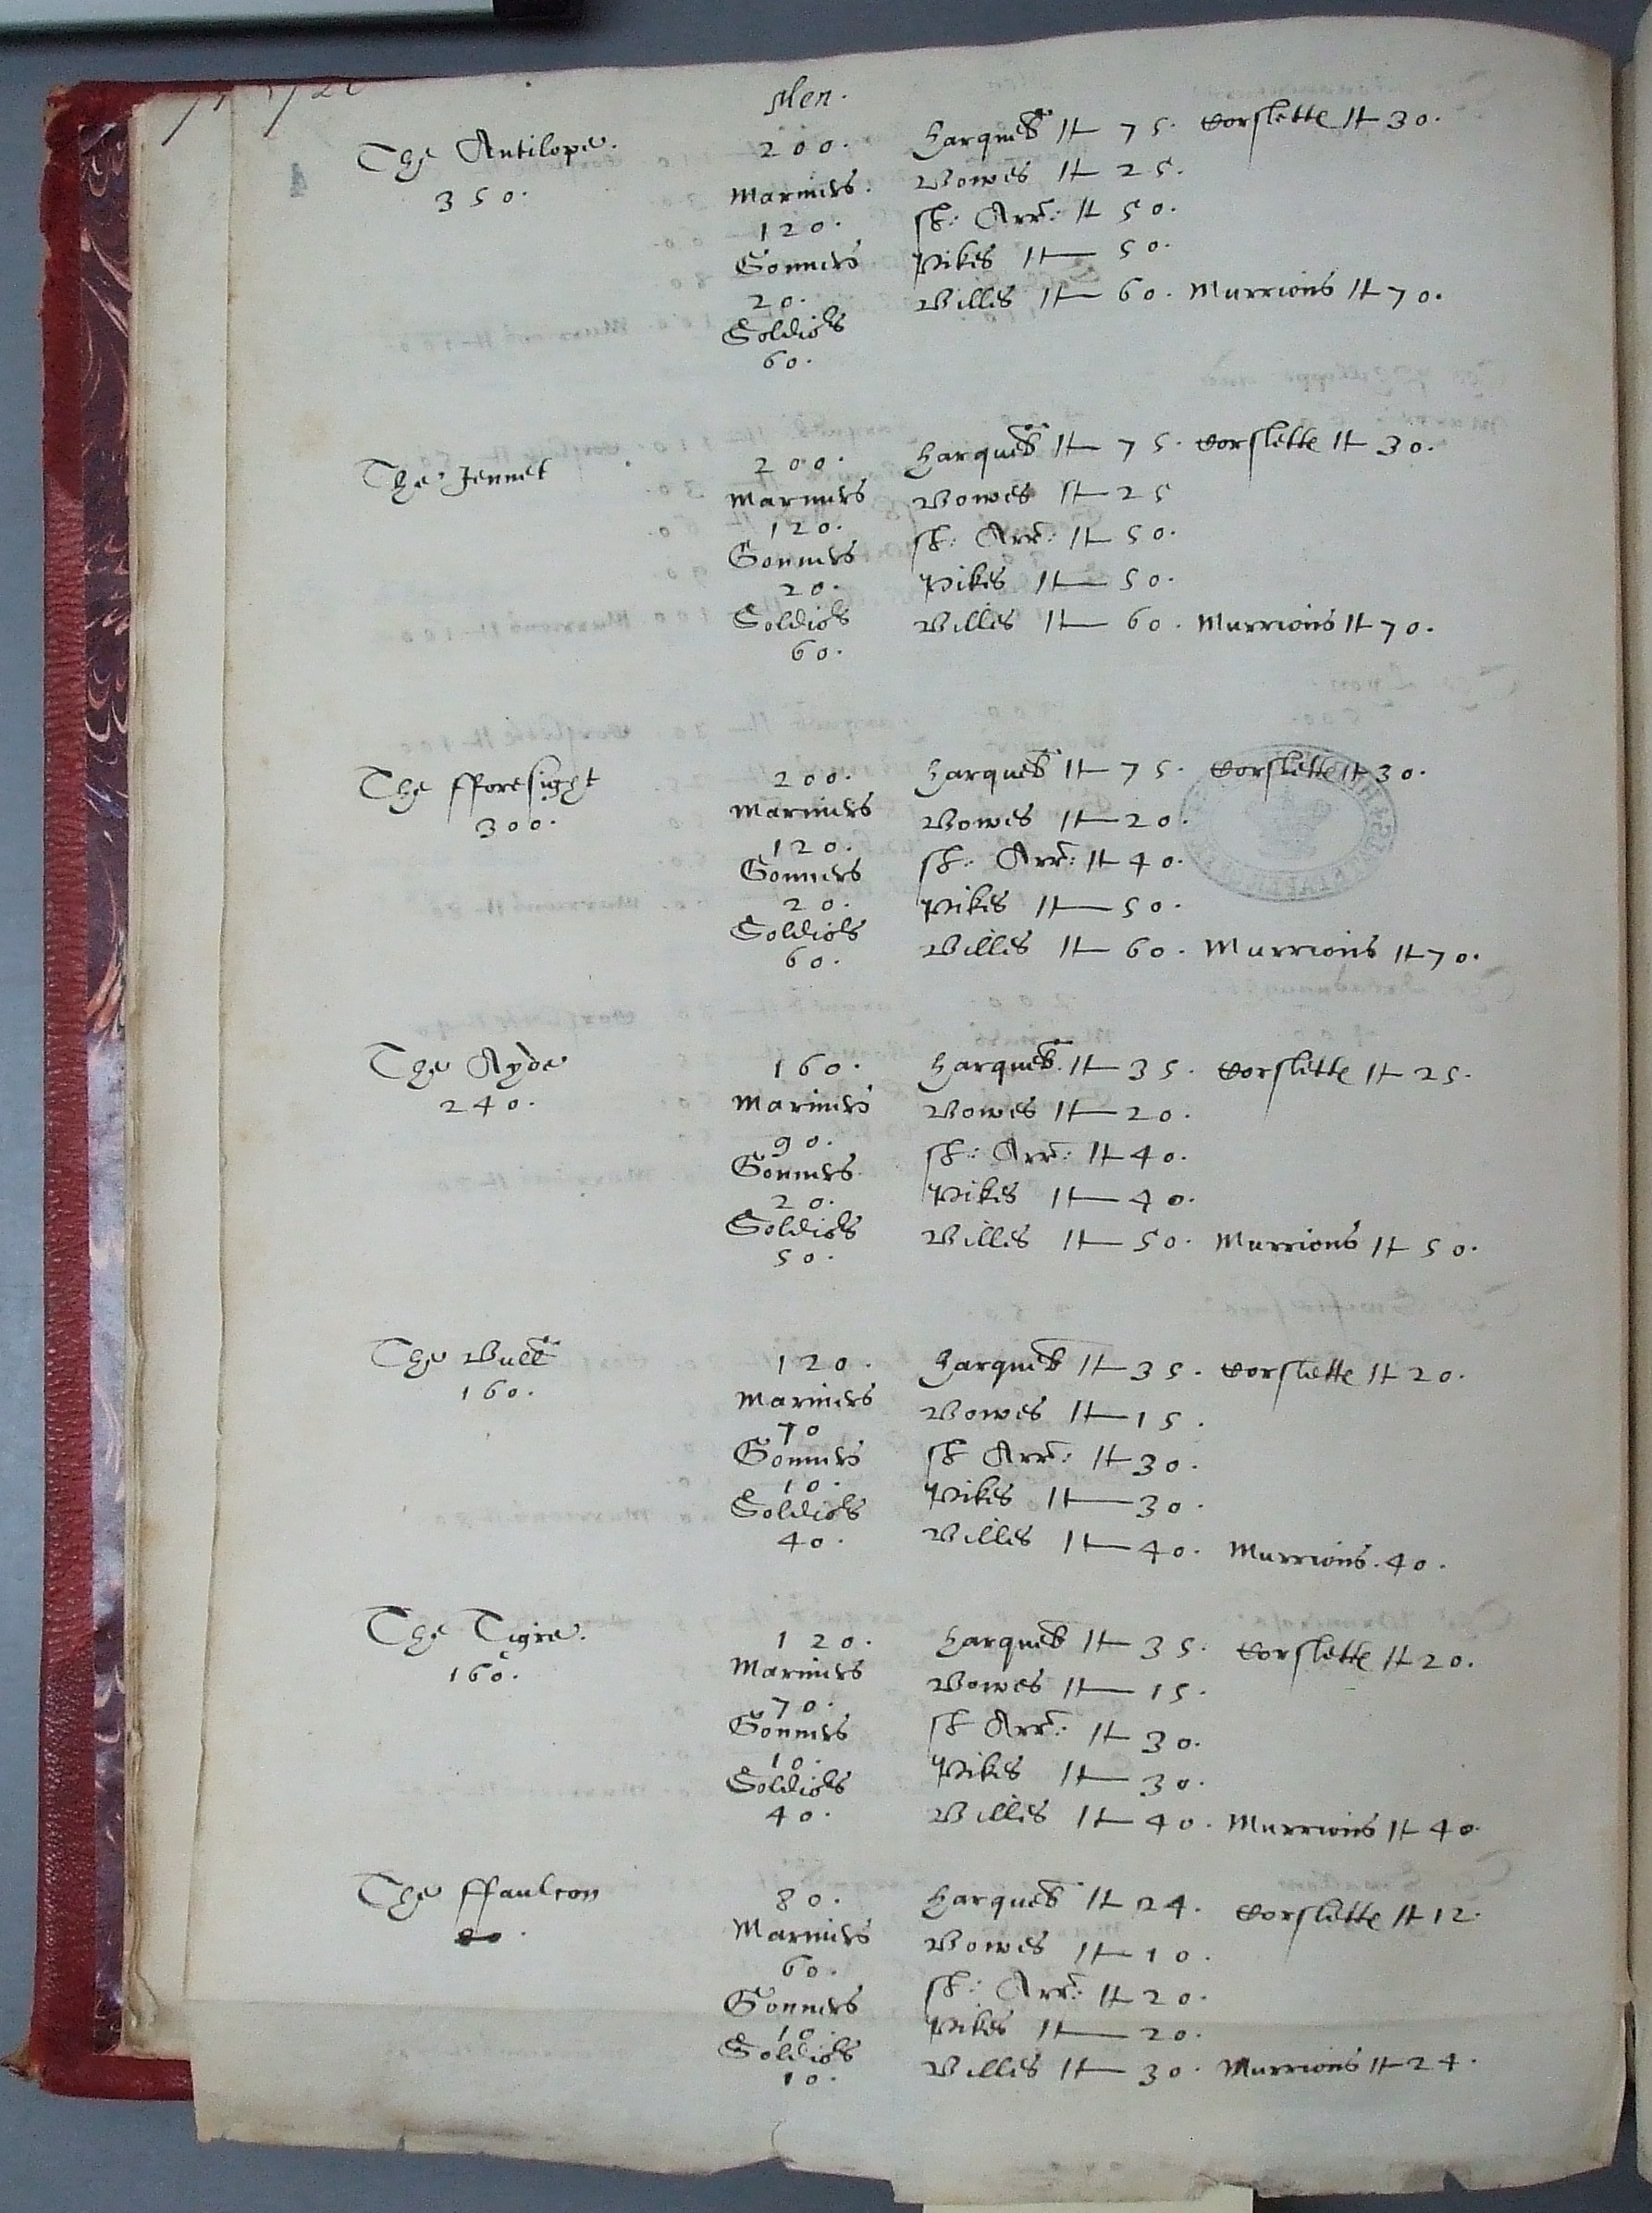 Men.
The Antilope. 200. Harqueb It 75. Corslette It 30.
350. Mariners. Bowes It 25.
120. sh: Arr: It 50.
Gonners Pikes It 50.
20. Billes It 60. Murrions It 70.
Soldiors
60.
The Jennet 200. Harqueb It 75. Corslette It 30.
Mariners Bowes It 25
120. sh: Arr: It 50.
Gonners
20. Pikes It 50.
Soldiors Billes It 60. Murrions It 70.
60.
The fforesight 200. Harqueb It 75. Corslette It 30.
300. Mariners Bowes It 20.
120. sh: Arr: It 40.
Gonners
20. Pikes It 50.
Soldiors Billes It 60. Murrions It 70.
60.
The Ayde 160. Harqueb. It 35. Corslette It 25.
240. Mariners Bowes It 20.
90. sh: Arr: It 40.
Gonners.
20. Pikes It 40.
Soldiors Billes It 50. Murrions It 50.
50.
The Bull 120. Harqueb It 35. Corslette It 20.
160. Mariners Bowes It 15.
70
Gonners sh Arr: It 30.
10. Pikes It 30.
Soldiors
40. Billes It 40. Murrions. 40.
The Tigre. 120. Harqueb It 35. Corslette It 20.
160. Mariners Bowes It 15.
70.
Gonners sh Arr: It 30.
10. Pikes It 30.
Soldiors
40. Billes It 40. Murrions It 40.
The ffaulcon 80. Harqueb It 24. Corslette It 12.
Mariners Bowes It 10.
60.
Gonners sh: Arr: It 20.
10. Pikes It 20.
Soldiors Billes It 30. Murrions It 24.
10.